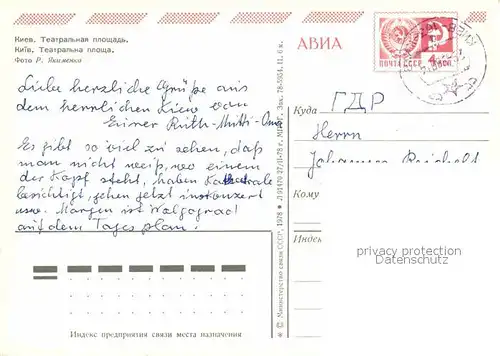 Киев. Театральная площадь.
Київ. Театральна площа.
Фото Р. Якименко
Liebe herzliche Grüße aus
dem herrlichen Kiew von
Eurer Ruth-Mutti-Oma
Es gibt so viel zu sehen, daß
man nicht weiß, wo einem
der Kopf steht, haben Kathedrale
besichtigt, gehen jetzt ins Konzert
usw. Morgen ist Wolgograd
auf dem Tagesplan!
Индекс предприятия связи места назначения
© Министерство связи СССР, 1978
АВИА
ПОЧТА СССР
4 КОП
Куда ГДР
Herrn
Johannes
Кому
Индекс
privacy protection
oldthing.de